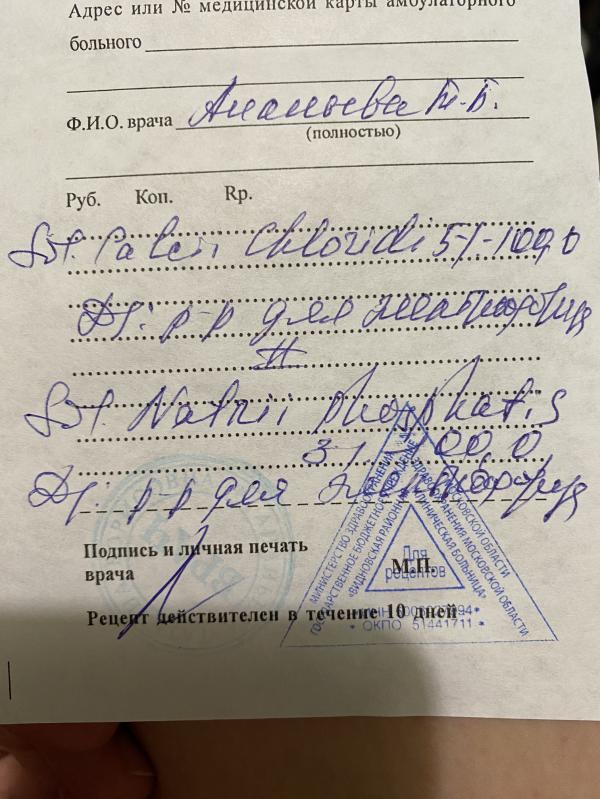 Адрес или № медицинской карты амбулаторного
больного
Ф.И.О. врача Ананьева Т.Б.
(полностью)
Руб. Коп. Rp.
Sol. Calcii Chloridi 5% - 100,0
DS: р-р для электрофореза
#
Sol. Natrii phosphatis
3% 100,0
DS: р-р для электрофореза
Подпись и личная печать
врача
М.П.
Рецепт действителен в течение 10 дней
МИНИСТЕРСТВО ЗДРАВООХРАНЕНИЯ МОСКОВСКОЙ ОБЛАСТИ
ГОСУДАРСТВЕННОЕ БЮДЖЕТНОЕ УЧРЕЖДЕНИЕ ЗДРАВООХРАНЕНИЯ МОСКОВСКОЙ ОБЛАСТИ
«ВИДНОВСКАЯ РАЙОННАЯ КЛИНИЧЕСКАЯ БОЛЬНИЦА»
Для
рецептов
* ОКПО 51441711 *
ВРАЧ